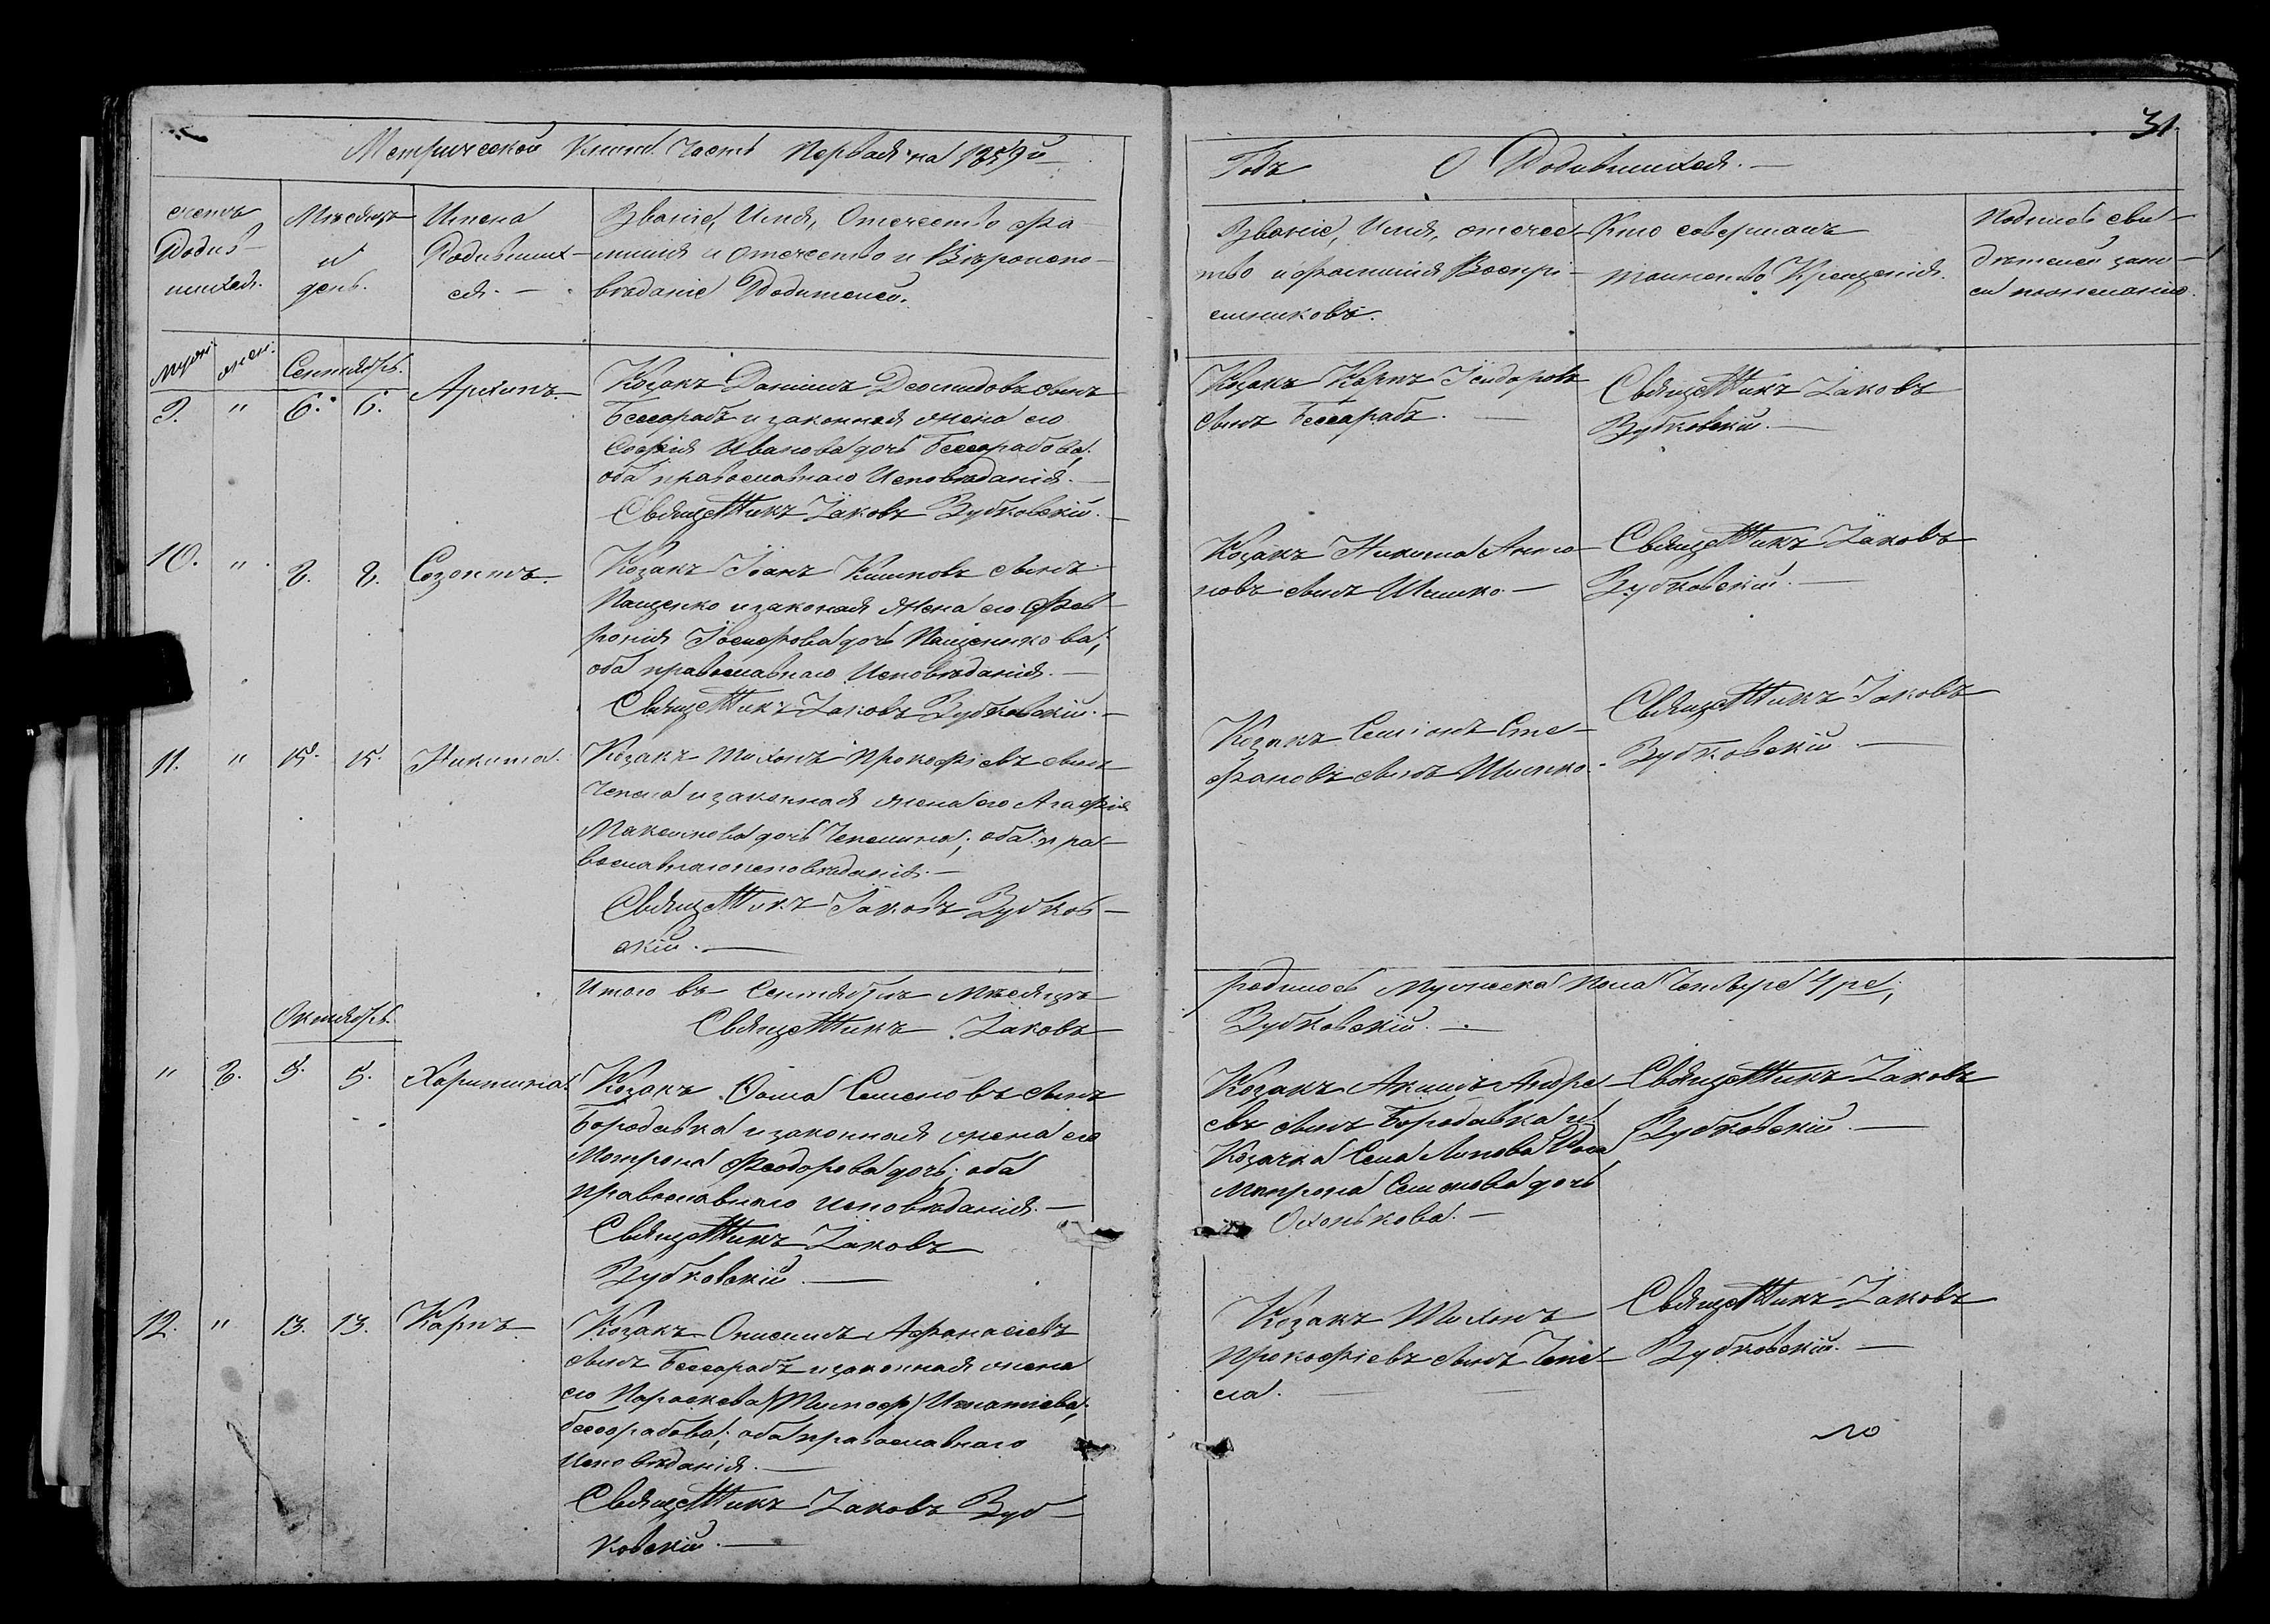 31.
Метрической Книги Часть Первая на 1859й
Годъ О Родившихся.
счетъ
Родив-
шихся.
Мѣсяцъ
и
день.
Имена
Родивших-
ся.
Званіе, Имя, Отечество Фа-
милия и Отечество и Вѣроиспо-
вѣданіе Родителей.
Званіе, Имя, отечес-
тво и фамилія Воспрі-
емниковъ.
Кто совершалъ
таинство Крещенія.
Подписъ сви-
дѣтелей запи-
си по желанію.
муж: жен: Сентябрь.
9. " 6. 6. Архипъ
Козакъ Даніилъ Деомидовъ сынъ
Бессарабъ и законная жена его
Софія Иванова дочь Бессарабова;
оба православнаго Исповѣданія.
Священникъ Іаковъ Зубковскій.
Козакъ Карпъ Ісидоровъ
сынъ Бессарабъ.
Священникъ Іаковъ
Зубковскій.
10. " 8. 8. Созонтъ
Козакъ Іоанъ Климовъ сынъ
Пащенко и законая жена его Фев-
ронія Іосифова дочь Пащенкова;
оба православнаго Исповѣданія.
Священникъ Іаковъ Зубковскій.
Козакъ Никита Анто-
новъ сынъ Шишко
Священникъ Іаковъ
Зубковскій.
11. " 15. 15. Никита.
Козакъ Тихонъ Прокофіевъ сынъ
Чепела и законная жена его Агафія
Максимова дочь Чепелина; оба пра-
вославнаго исповѣданія.
Священникъ Іаковъ Зубков-
скій.
Козакъ Симіонъ Сте-
фановъ сынъ Шишко.
Священникъ Іаковъ
Зубковскій
Итого въ Сентябрѣ Мѣсяцѣ
родилось Мужеска Пола Четыре 4ре;
Священникъ Іаковъ
Зубковскій.
Октябрь.
" 8. 5. 5. Харитина.
Козакъ Ѳома Семеновъ сынъ
Бородавка и законная жена его
Мотрона Феодорова дочь; оба
православнаго исповѣданія.
Священникъ Іаковъ
Зубковскій.
Козакъ Акимъ Андре-
евъ сынъ Бородавка и
Козачка Села Липова Дола
Мотрона Семенова дочь
Священникъ Іаковъ
Зубковскій.
12. " 13. 13. Карпъ
Козакъ Онисимъ Афанасіевъ
сынъ Бессарабъ и законная жена
его Параскева (Тимоф) Игнатіева;
бессарабова; оба православнаго
исповѣданія.
Священникъ Іаковъ Зуб-
ковскій.
Козакъ Тихонъ
Прокофіевъ сынъ Чепе-
ла.
Священникъ Іаковъ
Зубковскій.
ло